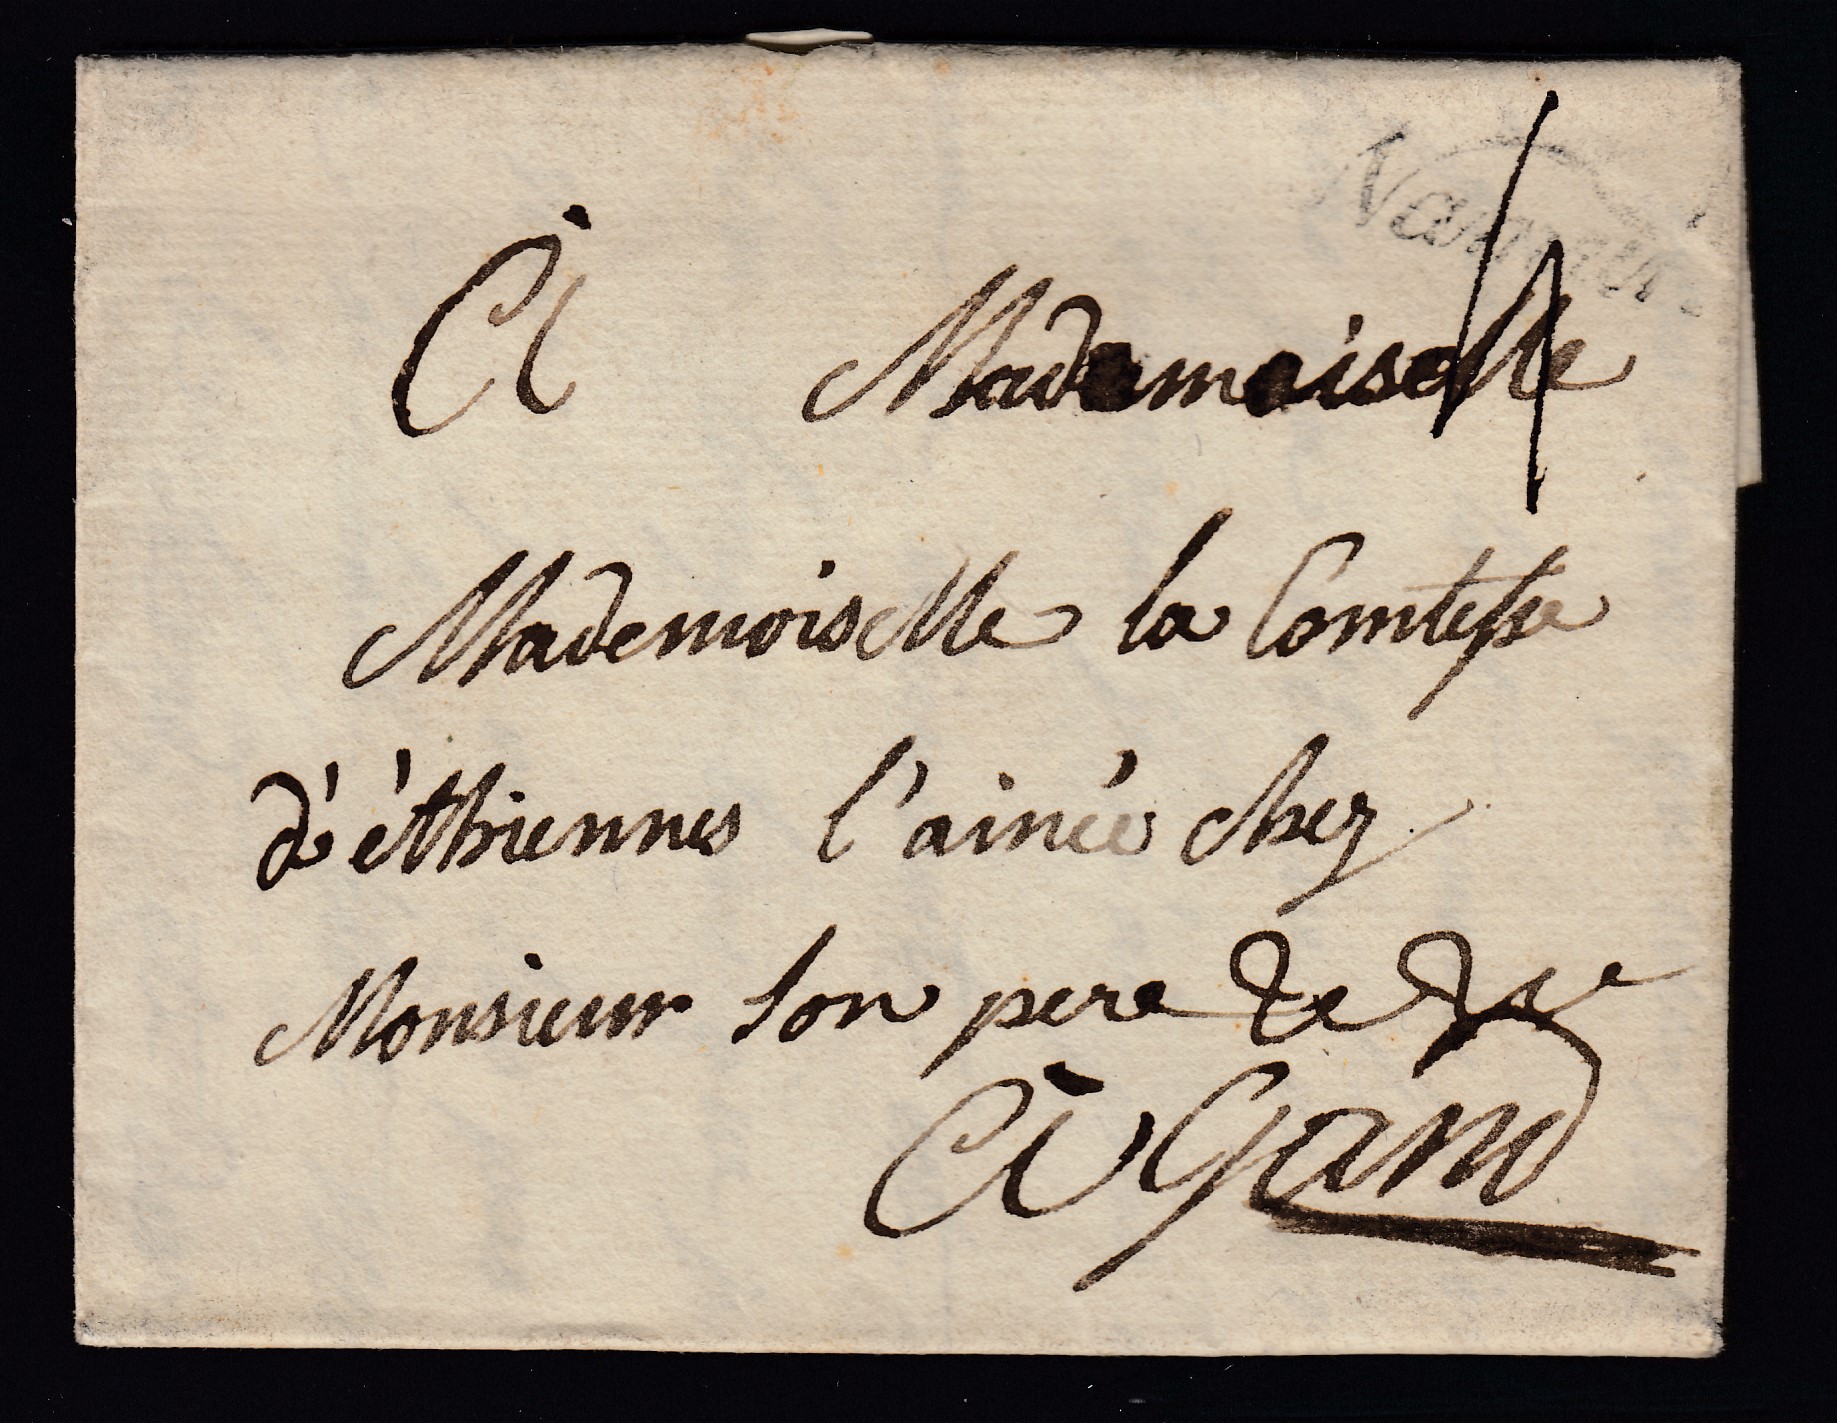 Namur
4
À Mademoiselle
Mademoiselle la Comtesse
d'éthiennes l'ainée chez
Monsieur son pere &e &e
à Gand